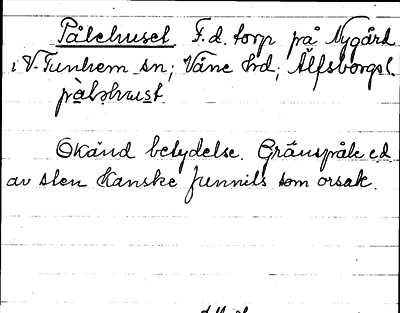 Pålehuset F.d. torp på Nygård
i V. Tunhem sn; Väne hrd; Älfsborgs l.
Okänd betydelse. Gränspåle el.
av sten kanske funnits som orsak.